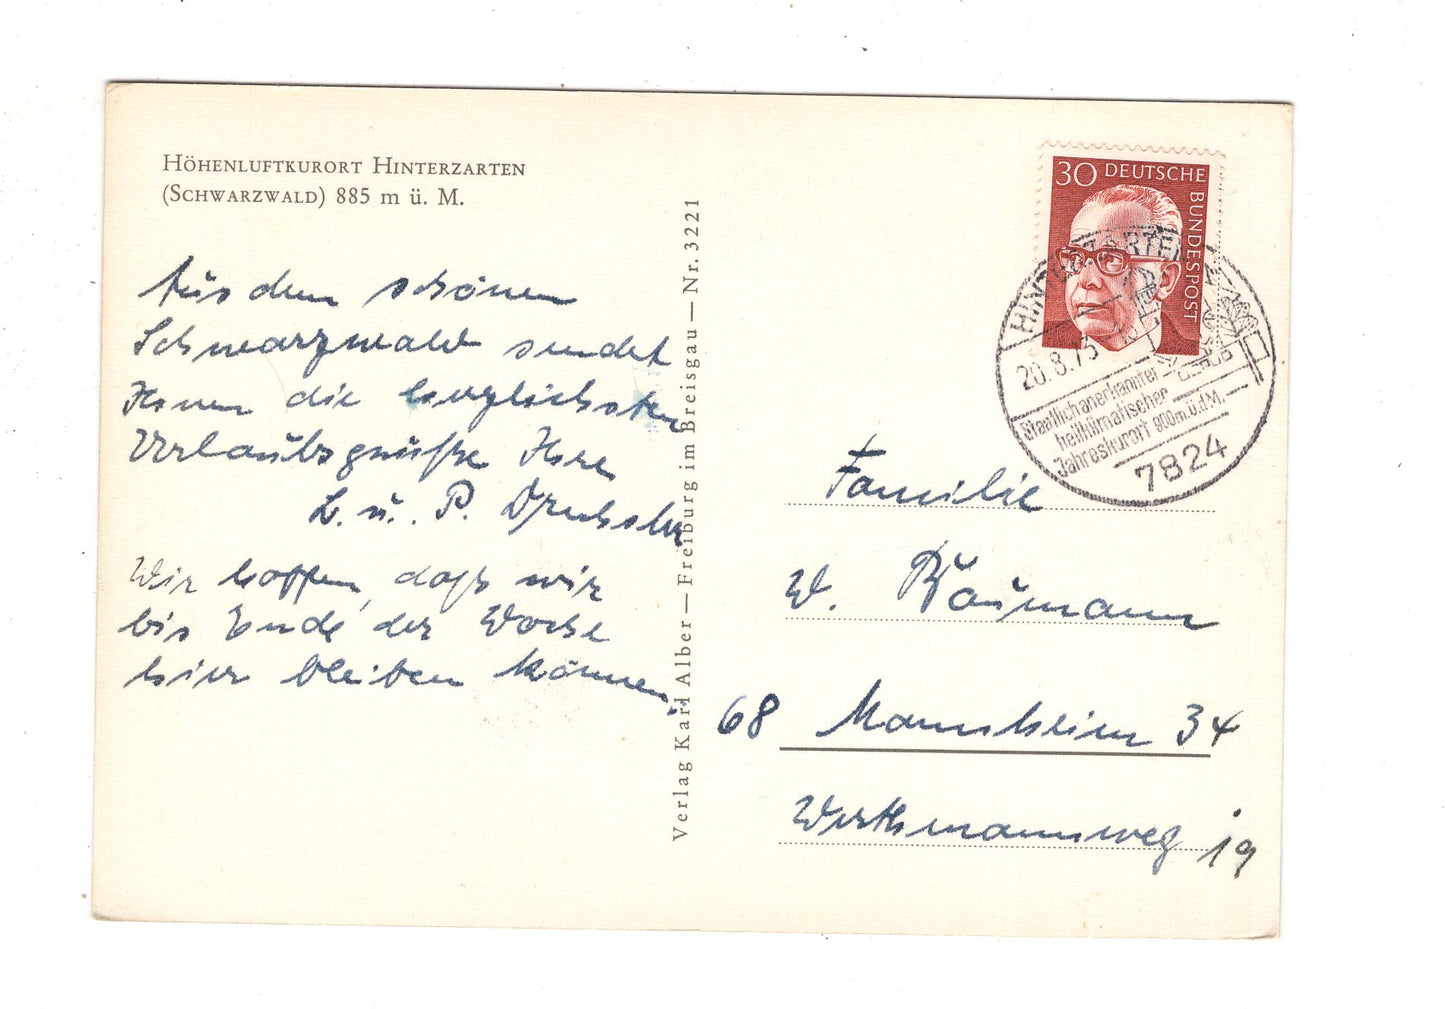 HÖHENLUFTKURORT HINTERZARTEN
(SCHWARZWALD) 885 m ü. M.
Aus dem schönen
Schwarzwald sendet
Ihnen die herzlichsten
Urlaubsgrüße Ihre
L. u. P.
Wir hoffen, daß wir
bis Ende der Woche
hier bleiben können.
Verlag Karl Alber — Freiburg im Breisgau — Nr. 3221
30 DEUTSCHE
BUNDESPOST
HINTERZARTEN
20.8.73
Staatlich anerkannter
heilklimatischer
Jahreskurort 900m ü.d.M.
7824
Familie
W. Baumann
68 Mannheim 34
Werthmannsweg 19